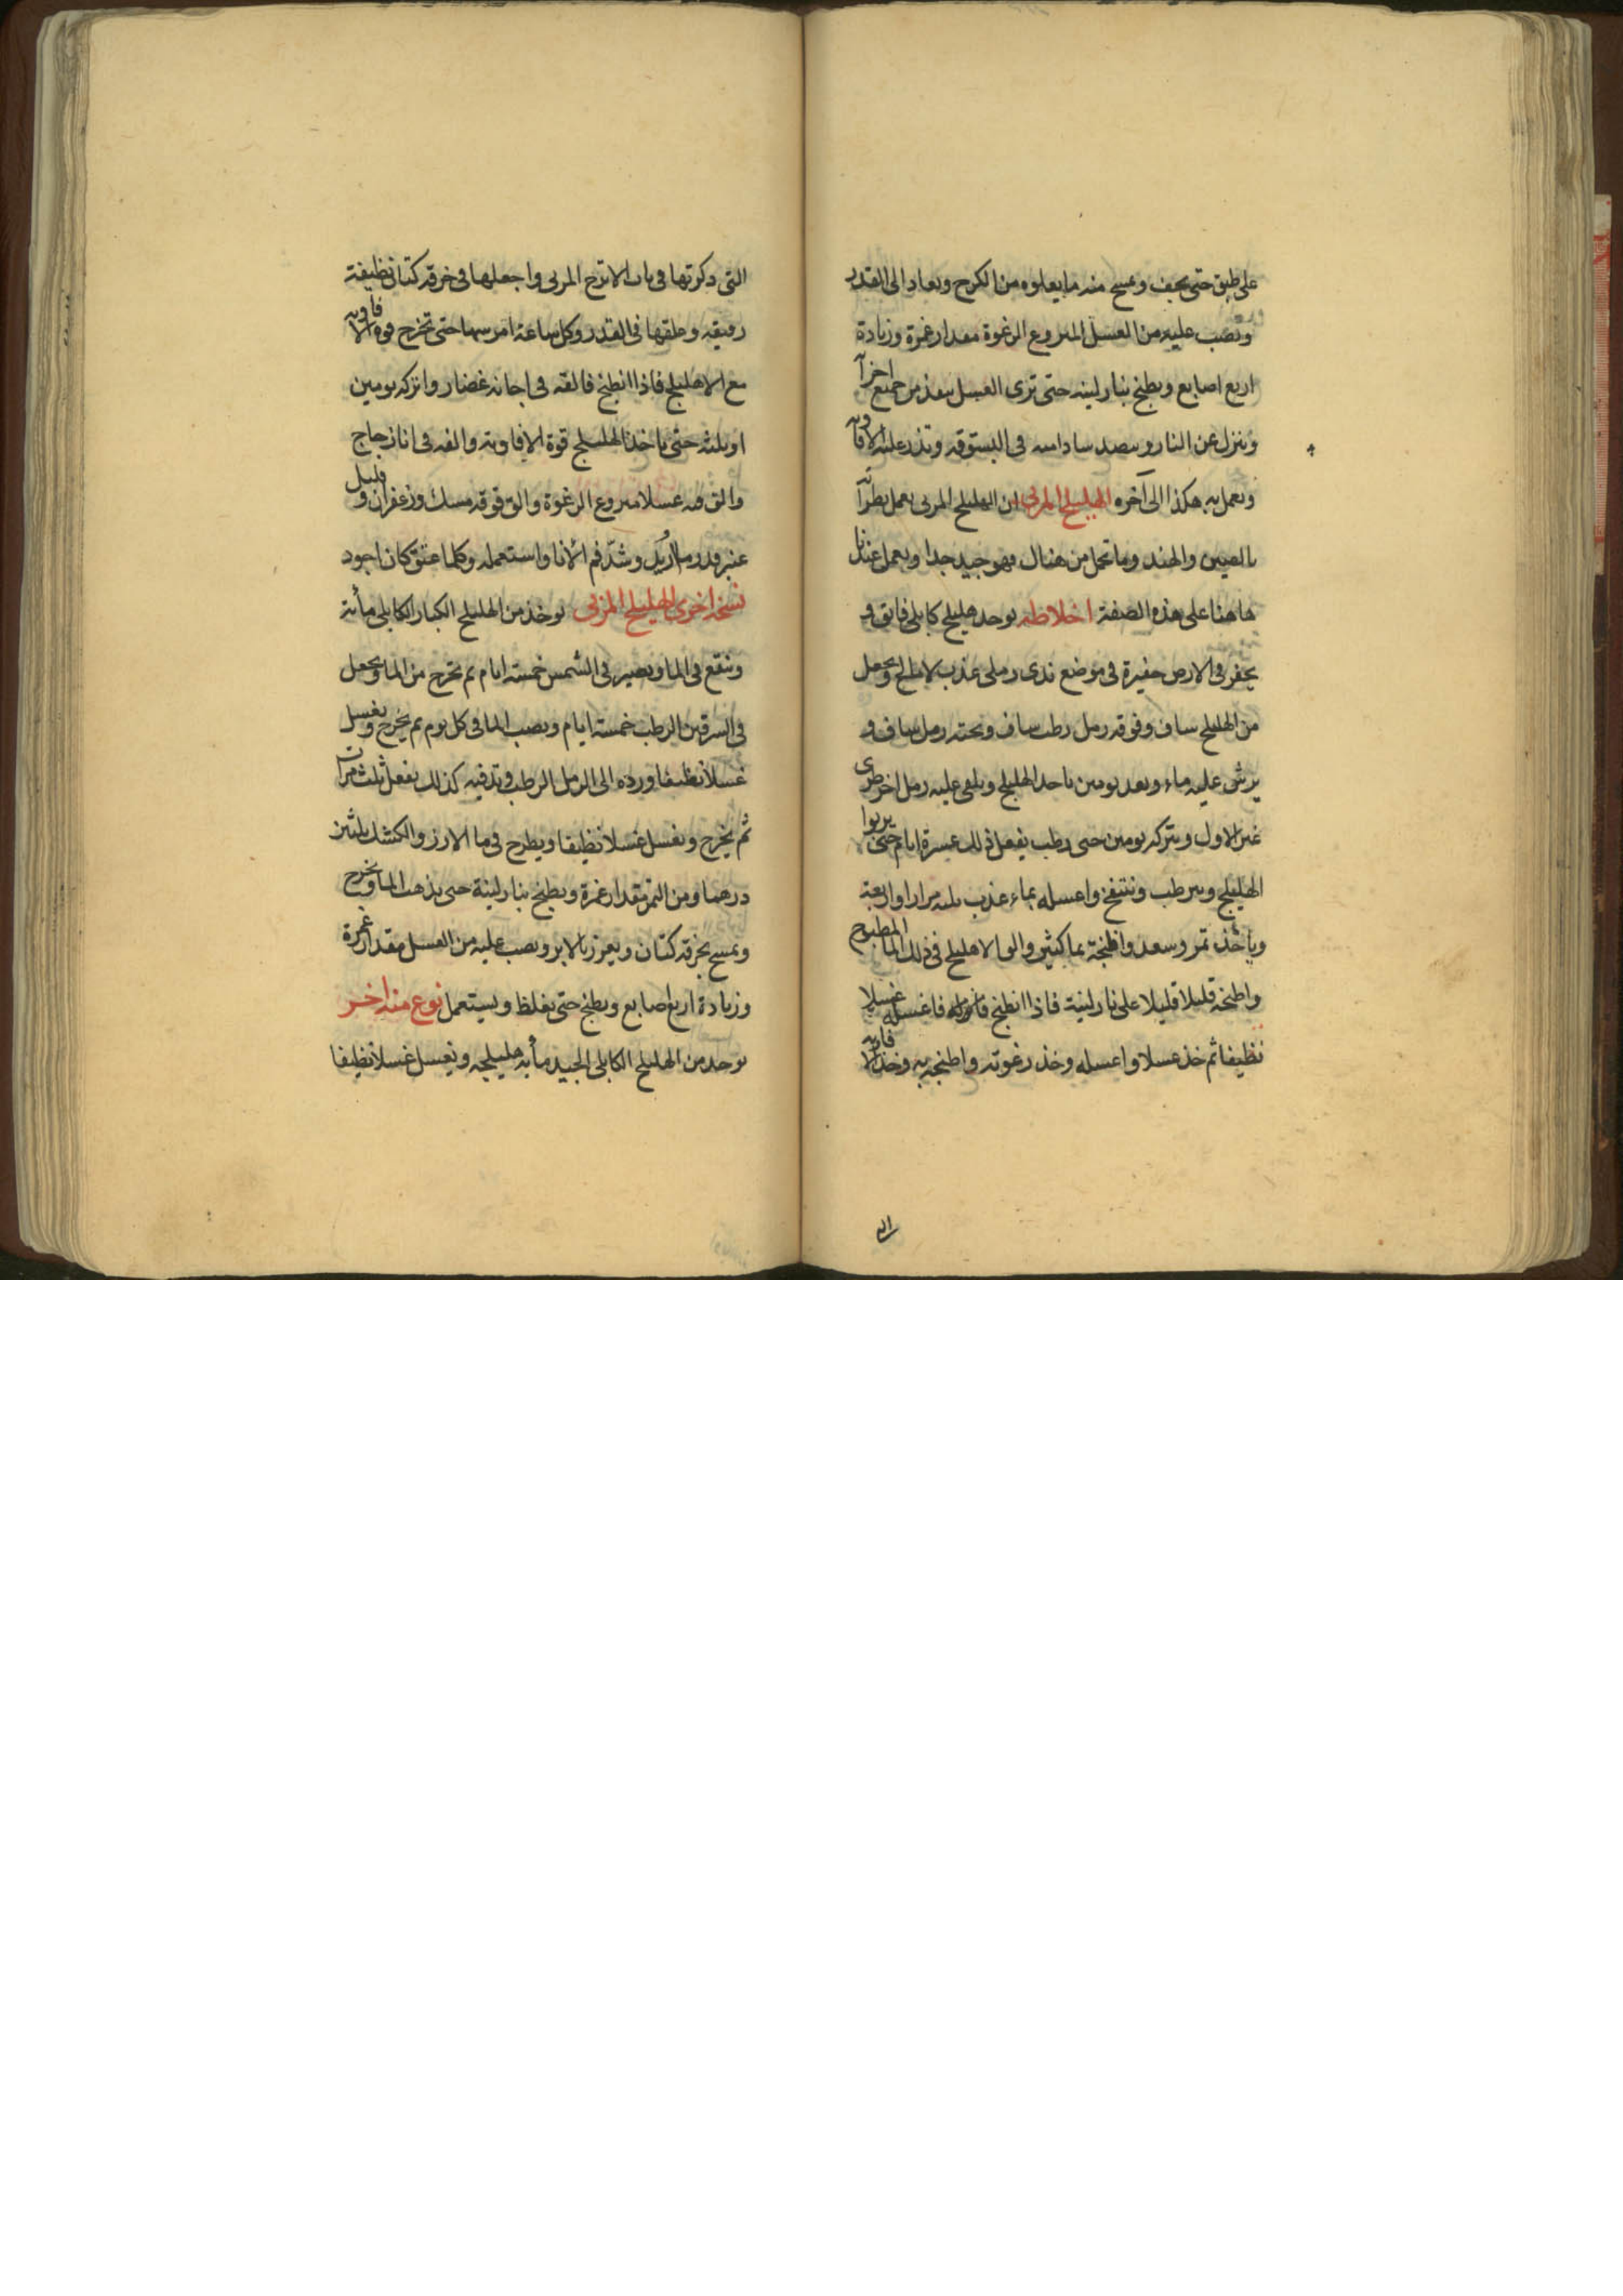 على طبق حتى يجف ويمسح منه ما يعلوه من الكرج ويعاد الى القدر
ويصب عليه من العسل المنزوع الرغوة مقدار غمرة وزيادة
اربع اصابع ويطبخ بنار لينه حتى ترى العسل ينفذ من جميع اخرآ
وينزل عن النار وينضد سادامنه فى البستوقه وتذر عليه الافاويه
ويعمل به هكذا الى آخره الهليلج المربى ان الهليلج المربى يعمل بطرآته
بالصين والهند وما تحمل من هنال فهو جيد جدا ويعمل عندنا
هاهنا على هذه الصفة اخلاطه يوخد هليلج كابلى فايق و
يحفر فى الارض حفيرة فى موضع ندى رملى عذب لا مالح ويجعل
من الهليلج ساف وفوقه رمل رطب ساف وتحته رمل ساف و
يرش عليه ماء وبعد يومين ياخذ الهليلج ويلقى عليه رمل اخر طرى
غير الاول ويتركه يومين حتى رطب يفعل ذلك عسرة ايام حتى يربوا
الهليلج ويترطب وينتفخ واغسله بماء عذب ثلثه مرارا واربعة
وياخذ تمر وسعد واطبخه بما كثير والق الاهليلج فى ذلك الما المطبوخ
واطبخه قليلا قليلا على نار لينة فاذا انطبخ فانزله فاغسله غسلا
نظيفا ثم خذ عسلا واغسله وخذ رغوته واطبخه به وخذ الافاويه
الى
التى ذكرتها فى باب الاترج المربى واجعلها فى خرقه كتان نظيفة
رقيقه وعلقها فى القدر وكل ساعة امرسها حتى تخرج قوه الافاويه
مع الاهليلج فاذا انطبخ فالقه فى اجانه غضار واتركه يومين
او ثلثه حتى ياخذ الهليلج قوة الافاويه والقه فى انا زجاج
والق فيه عسلا منزوع الرغوة والق فوقه مسك وزعفران وقليل
عنبر قدر ما اريك وشدّ فم الانا واستعمله وكلما عتق كان اجود
نسخه اخرى الهليلج المربى يوخذ من الهليلج الكبار الكابلى مأية
وينقع فى الما ويصير فى الشمس خمسة ايام ثم تخرج من الما ويجعل
فى السرقين الرطب خمسة ايام ويصب الما فى كل يوم ثم يخرج ويغسل
غسلا نظيفا ورده الى الرمل الرطب وتدفيه كذلك يفعل ثلث مرات
ثم يخرج ويغسل غسلا نظيفا ويطرح فى ما الارز والكشك ثلثين
درهما ومن التمر مقدار غمرة ويطبخ بنار لينة حتى يذهب الما ويخرج
ويمسح بخرقه كتان ويغرز بالابر ويصب عليه من العسل مقدار غمرة
وزيادة اربع اصابع ويطبخ حتى يغلظ ويستعمل نوع منه اخر
يوخد من الهليلج الكابلى الجيد مأيه هليلجه ويغسل غسلا نظيفا